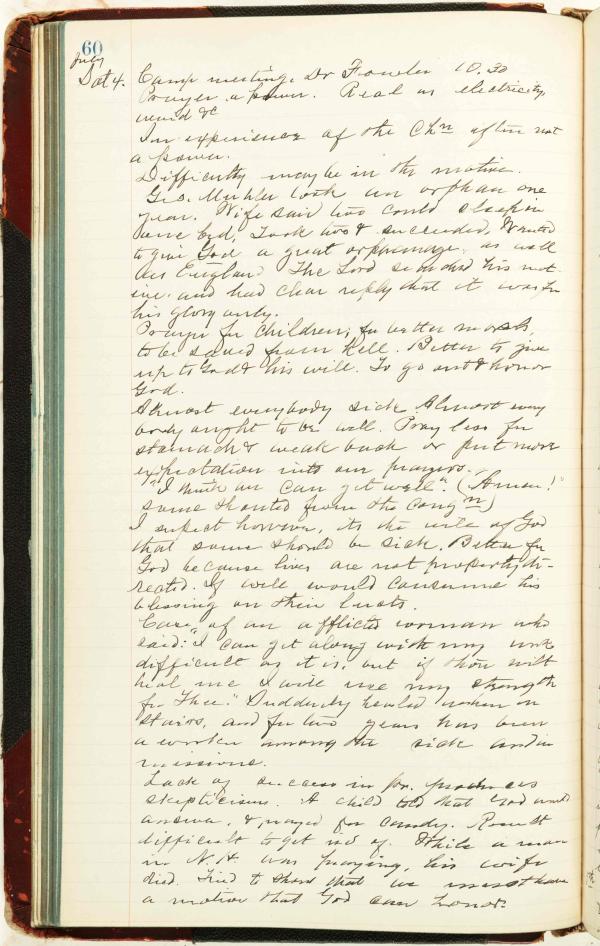 60
July
Sat 4. Camp meeting. Dr Fowler 10.30
Prayer a power. Real as electricity,
wind &c
In experience of the Chn often not
a power.
Difficulty may be in the motive.
Geo. Muhler took an orphan one
year. Wife said two could sleep in
one bed, Took two & succeeded, Wanted
to give God a great orphanage. as well
as England The Lord searched his mot-
ive. and had clear reply that it was for
his glory only.
Prayer for children; for better morals,
to be saved from Hell. Better to give
up to God & his will. To go out & honor
God.
Almost everybody sick Almost every
body ought to be well. Pray less for
stomach & weak back or put more
expectation into our prayers.
"I think we can get well". (Amen!"
some shouted from the congn)
I suspect however, its the will of God
that some should be sick. Better for
God because lives are not properly di-
rected. If well would consume his
blessing on their lusts.
Case of an afflicted woman who
said: "I can get along with my work
difficult as it is, but if thou wilt
heal me I will use my strength
for Thee." Suddenly healed when on
stairs, and for two years has been
a worker among the sick and in
missions.
Lack of success in pr. produces
skepticism. A child told that God would
answer, & prayed for candy. Result
difficult to get rid of. While a man
in N.H. was praying, his wife
died. Tried to show that we must have
a motive that God can honor.